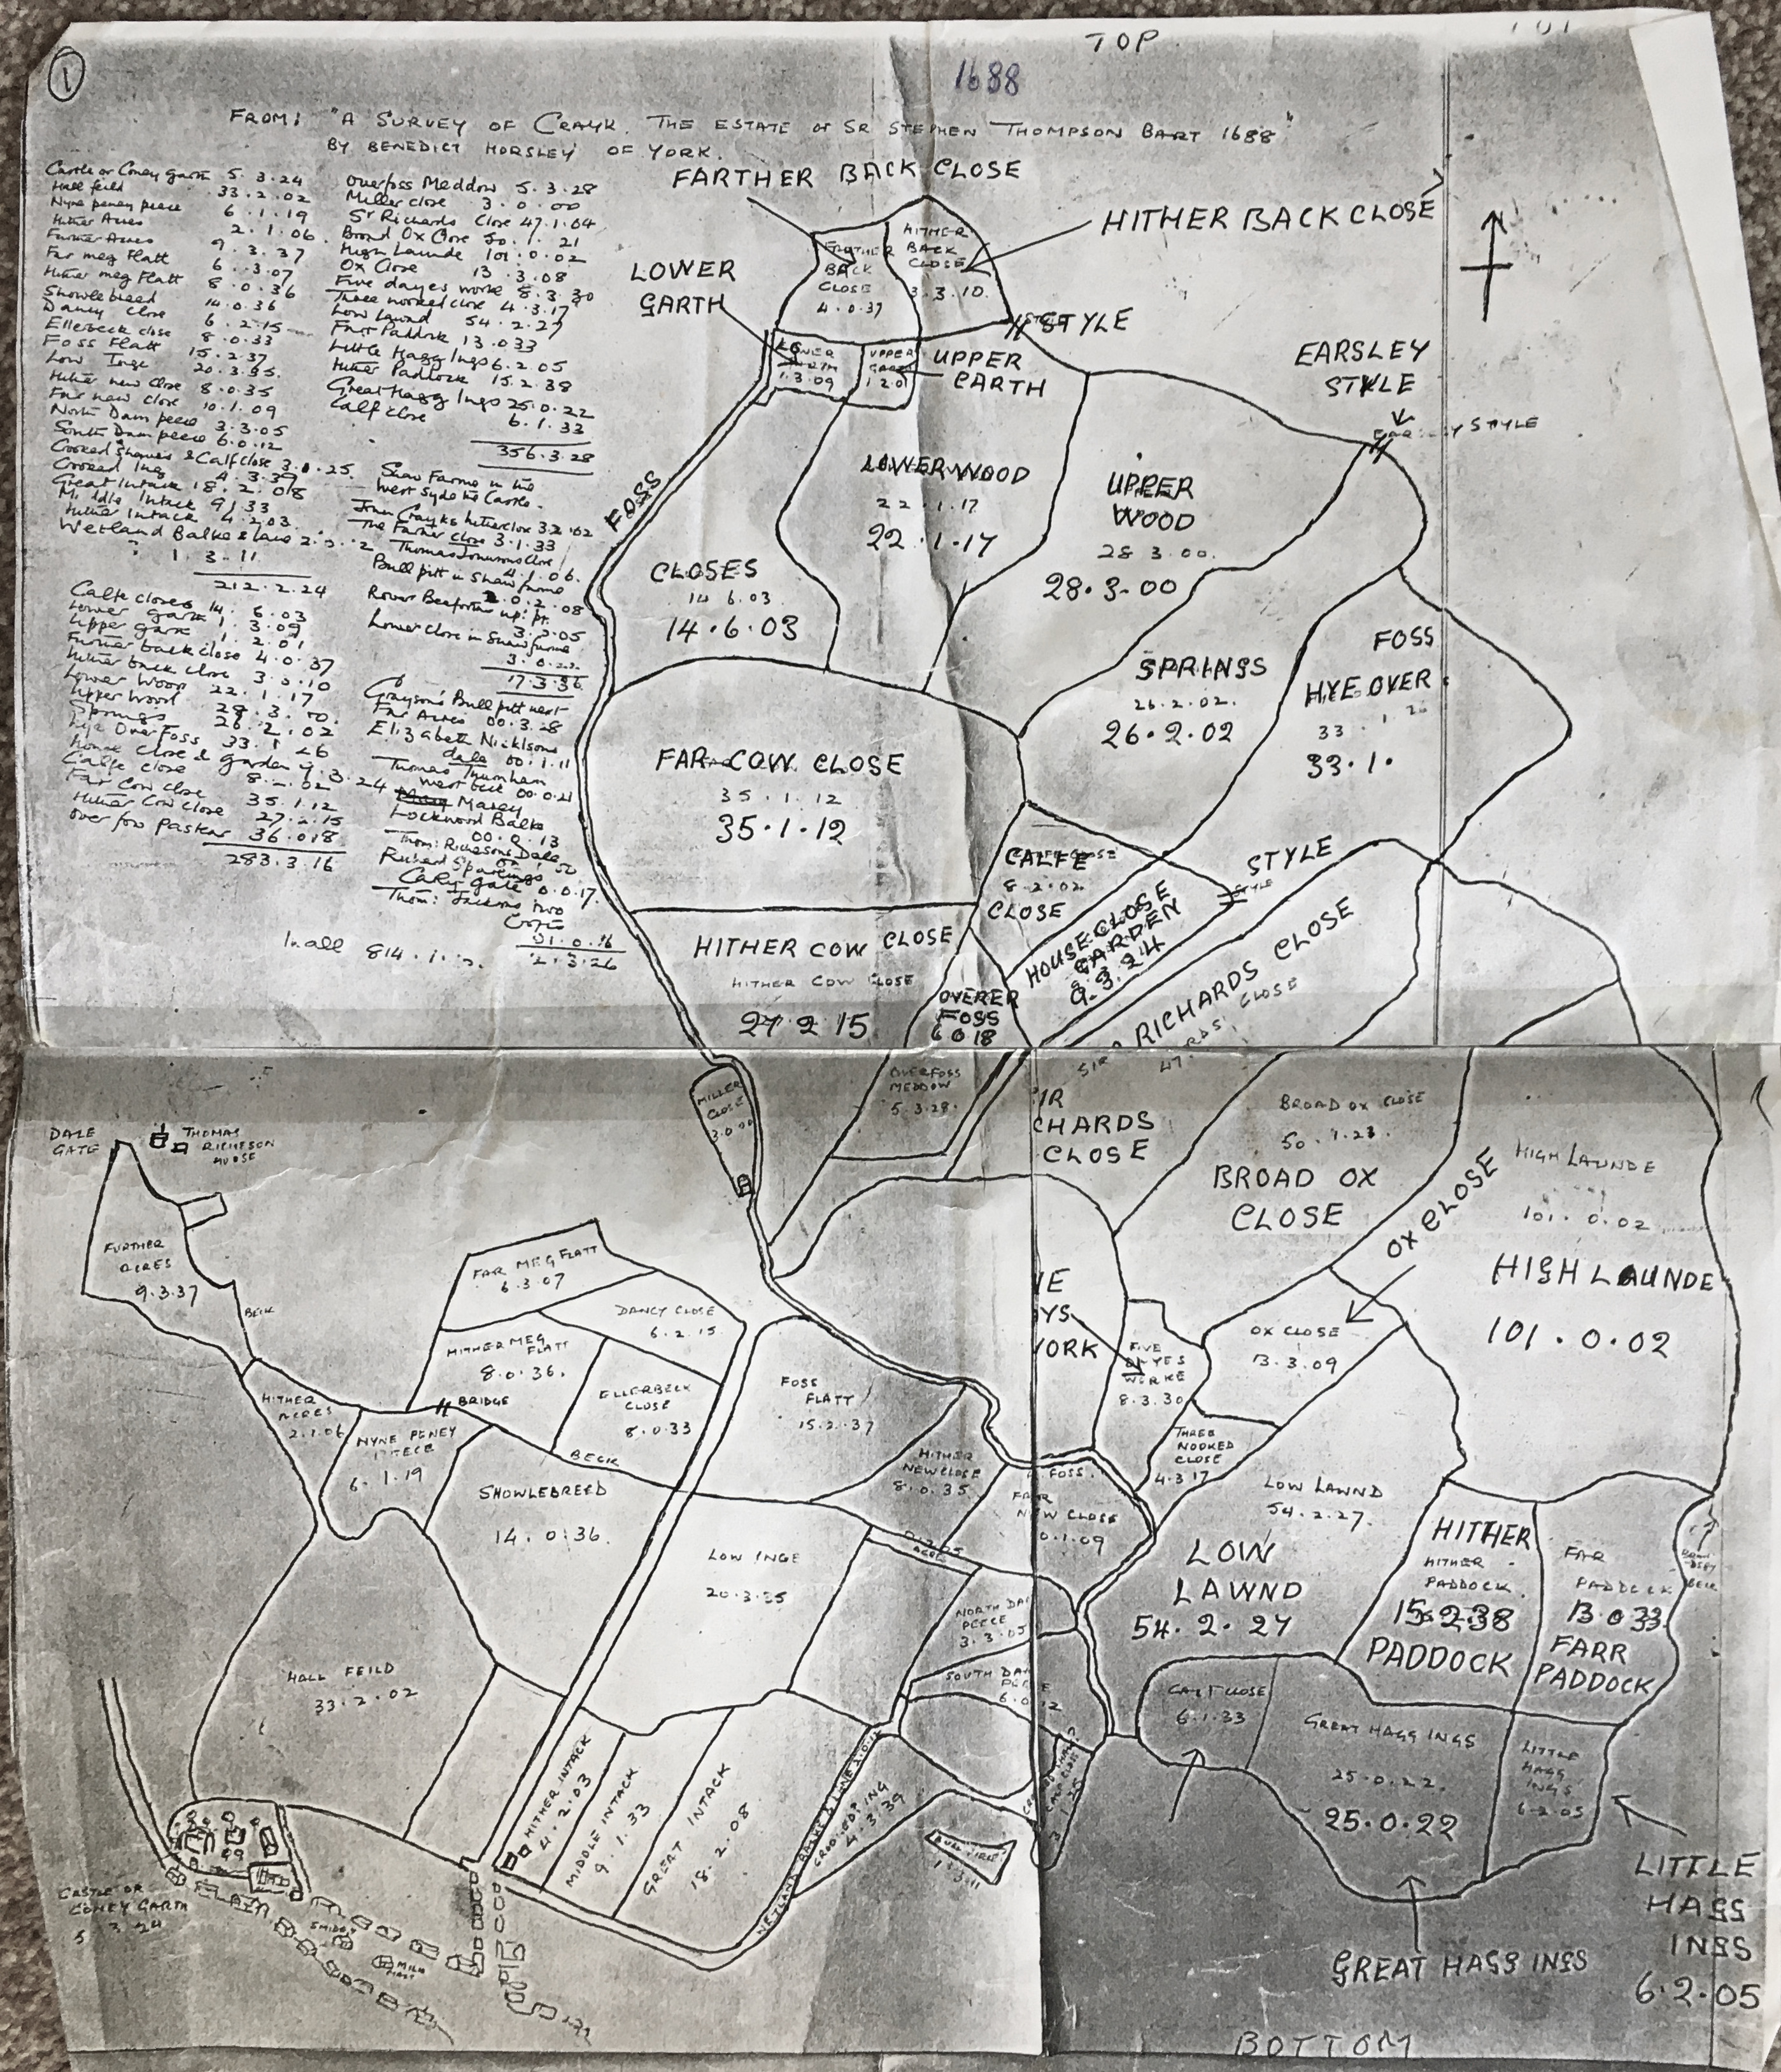 1
TOP
1688
FROM: "A SURVEY OF CRAYK. THE ESTATE OF SR STEPHEN THOMPSON BART 1688"
BY BENEDICT HORSLEY OF YORK.
Castle or Coney garth 5.3.24
Hall feild 33.2.02
Nyne peney peece 6.1.19
Hither Acres 2.1.06.
Further Acres 9.3.37
Far meg Flatt 6.3.07
Hither meg Flatt 8.0.36
Showlebreed 14.0.36
Dancy Close 6.2.15
Ellerbeck close 8.0.33
Foss Flatt 15.2.37
Low Inge 20.3.35.
Hither new Close 8.0.35
Far new close 10.1.09
North Dam peece 3.3.05
South Dam peece 6.0.12
Crooked & Calfclose 3.0.25.
Crooked Ing 4.3.39
Great Intack 18.2.08
Middle Intack 9.1.33
Hither Intack 4.2.03.
Wetland Balke & lane
1.3.11
212.2.24
Calfe closes 14.6.03
Lower garth 1.3.09
Upper garth 1.2.01
Further back close 4.0.37
Hither back close 3.3.10
Lower Wood 22.1.17
Upper Wood 28.3.00.
Springs 26.2.02
Hye Over Foss 33.1.26
house close & garden 9.3.24
Calfe close 8.2.02
Far Cow close 35.1.12
Hither Cow close 27.2.15
over foss Paster 36.0.18
283.3.16
Overfoss Meddow 5.3.28
Miller close 3.0.00
Sr Richards Close 47.1.04
Broad Ox Close 50.1.21
High Launde 101.0.02
Ox Close 13.3.08
Five dayes worke 8.3.30
Three nooked close 4.3.17
Low Lawnd 54.2.27
Farr Paddock 13.033
Little Hagg Ings 6.2.05
Hither Paddock 15.2.38
Great Hagg Ings 25.0.22
Calf close 6.1.33
356.3.28
Shaw Farme in the
West Syde the Castle.
John Crayks hither close 3.2.02
The Farther close 3.1.33
Thomas close
4.1.06.
Bull pitt in Shaw farme
2.0.2.08
3.2.05
Lower close in Shaw farme
17.3.36
Grayson's Bull pitt west
Far Acres 00.3.28
Elizabeth Nicklsons
dale 00.1.11
Thomas Thurnham
west 00.0.21
Marey
Lockwood Balke
00.0.13
Thom: Richesons Dale
Richard
gate 0.0.17.
Thom: Jacksons two
01.0.16
2.3.26
In all 814.1
FARTHER BACK CLOSE
HITHER BACK CLOSE
FARTHER
BACK
CLOSE
4.0.37
HITHER
BACK
CLOSE
3.3.10.
LOWER
GARTH
LOWER
GARTH
1.3.09
UPPER
GARTH
1.2.01
STYLE
UPPER
EARTH
EARSLEY
STYLE
STYLE
FOSS
LOWER WOOD
22.1.17
22.1.17
UPPER
WOOD
28.3.00.
28.3.00
CLOSES
14.6.03
14.6.03
SPRINGS
26.2.02.
26.2.02
FOSS
HYE OVER
33.1.26
33.1.
FAR COW CLOSE
35.1.12
35.1.12
CALFE
8.2.02
CLOSE
STYLE
STYLE
HOUSE CLOSE
GARDEN
9.3.24
HITHER COW CLOSE
HITHER COW CLOSE
27.2.15
OVERER
FOSS
6 0 18
RICHARDS CLOSE
SIR
CLOSE
47.
MILLER
CLOSE
3.0.00
OVERFOSS
MEDDOW
5.3.28.
IR
CHARDS
CLOSE
BROAD OX CLOSE
50.1.21.
BROAD OX
CLOSE
OX CLOSE
HIGH LAUNDE
101.0.02
HIGH LAUNDE
101.0.02
DALE
GATE
THOMAS
RICHESON
HOUSE
FURTHER
ACRES
9.3.37
BECK
FAR MEG FLATT
6.3.07
DANCY CLOSE
6.2.15.
HITHER MEG
FLATT
8.0.36.
BRIDGE
ELLERBECK
CLOSE
8.0.33
BECK
HITHER
ACRES
2.1.06
NYNE PENEY
PEECE
6.1.19
FOSS
FLATT
15.2.37
IE
YS
ORK
FIVE
DAYES
WORKE
8.3.30
OX CLOSE
13.3.09
THREE
NOOKED
CLOSE
4.3.17
SHOWLEBREED
14.0.36.
HITHER
NEW CLOSE
8.0.35
FOSS
FARR
NEW CLOSE
0.1.09
LOW INGE
20.3.35
LOW LAWND
54.2.27.
LOW
LAWND
54.2.27
HITHER
HITHER
PADDOCK
15.2.38
PADDOCK
FAR
PADDOCK
13.0.33
FARR
PADDOCK
NORTH DA
PEECE
3.3.05
SOUTH DA
PEECE
6.0.12
HALL FEILD
33.2.02
CALF CLOSE
6.1.33
GREAT HAGG INGS
25.0.22.
25.0.22
LITTLE
HAGG
INGS
6.2.05
HITHER INTACK
4.2.03
MIDDLE INTACK
9.1.33
GREAT INTACK
18.2.08
WETLAND BALKE & LANE 2.0.12
CROOKED ING
4.3.39
1.3.11
CASTLE OR
CONEY GARTH
5 3 24
SMIDDY
LITTLE
HAGG
INGS
6.2.05
GREAT HAGG INGS
BOTTOM